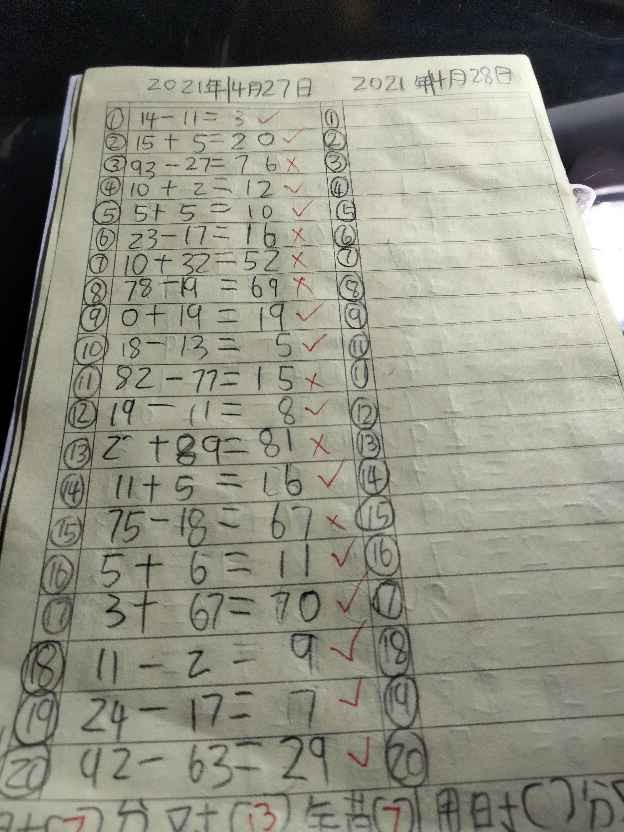 2021年4月27日 2021年4月28日
① 14-11=3 ✓ ①
② 15+5=20 ✓ ②
③ 93-27=76 × ③
④ 10+2=12 ✓ ④
⑤ 5+5=10 ✓ ⑤
⑥ 23-17=16 × ⑥
⑦ 10+32=52 × ⑦
⑧ 78-19=69 × ⑧
⑨ 0+19=19 ✓ ⑨
⑩ 18-13=5 ✓
⑪ 82-77=15 ×
⑫ 19-11=8 ✓ ⑫
⑬ 2+89=81 × ⑬
⑭ 11+5=16 ✓ ⑭
⑮ 75-18=67 × ⑮
⑯ 5+6=11 ✓ ⑯
⑰ 3+67=70 ✓ ⑰
⑱ 11-2=9 ✓ ⑱
⑲ 24-17=7 ✓ ⑲
⑳ 92-63=29 ✓ ⑳
(7)分 对(13) 错(7) 用时()分